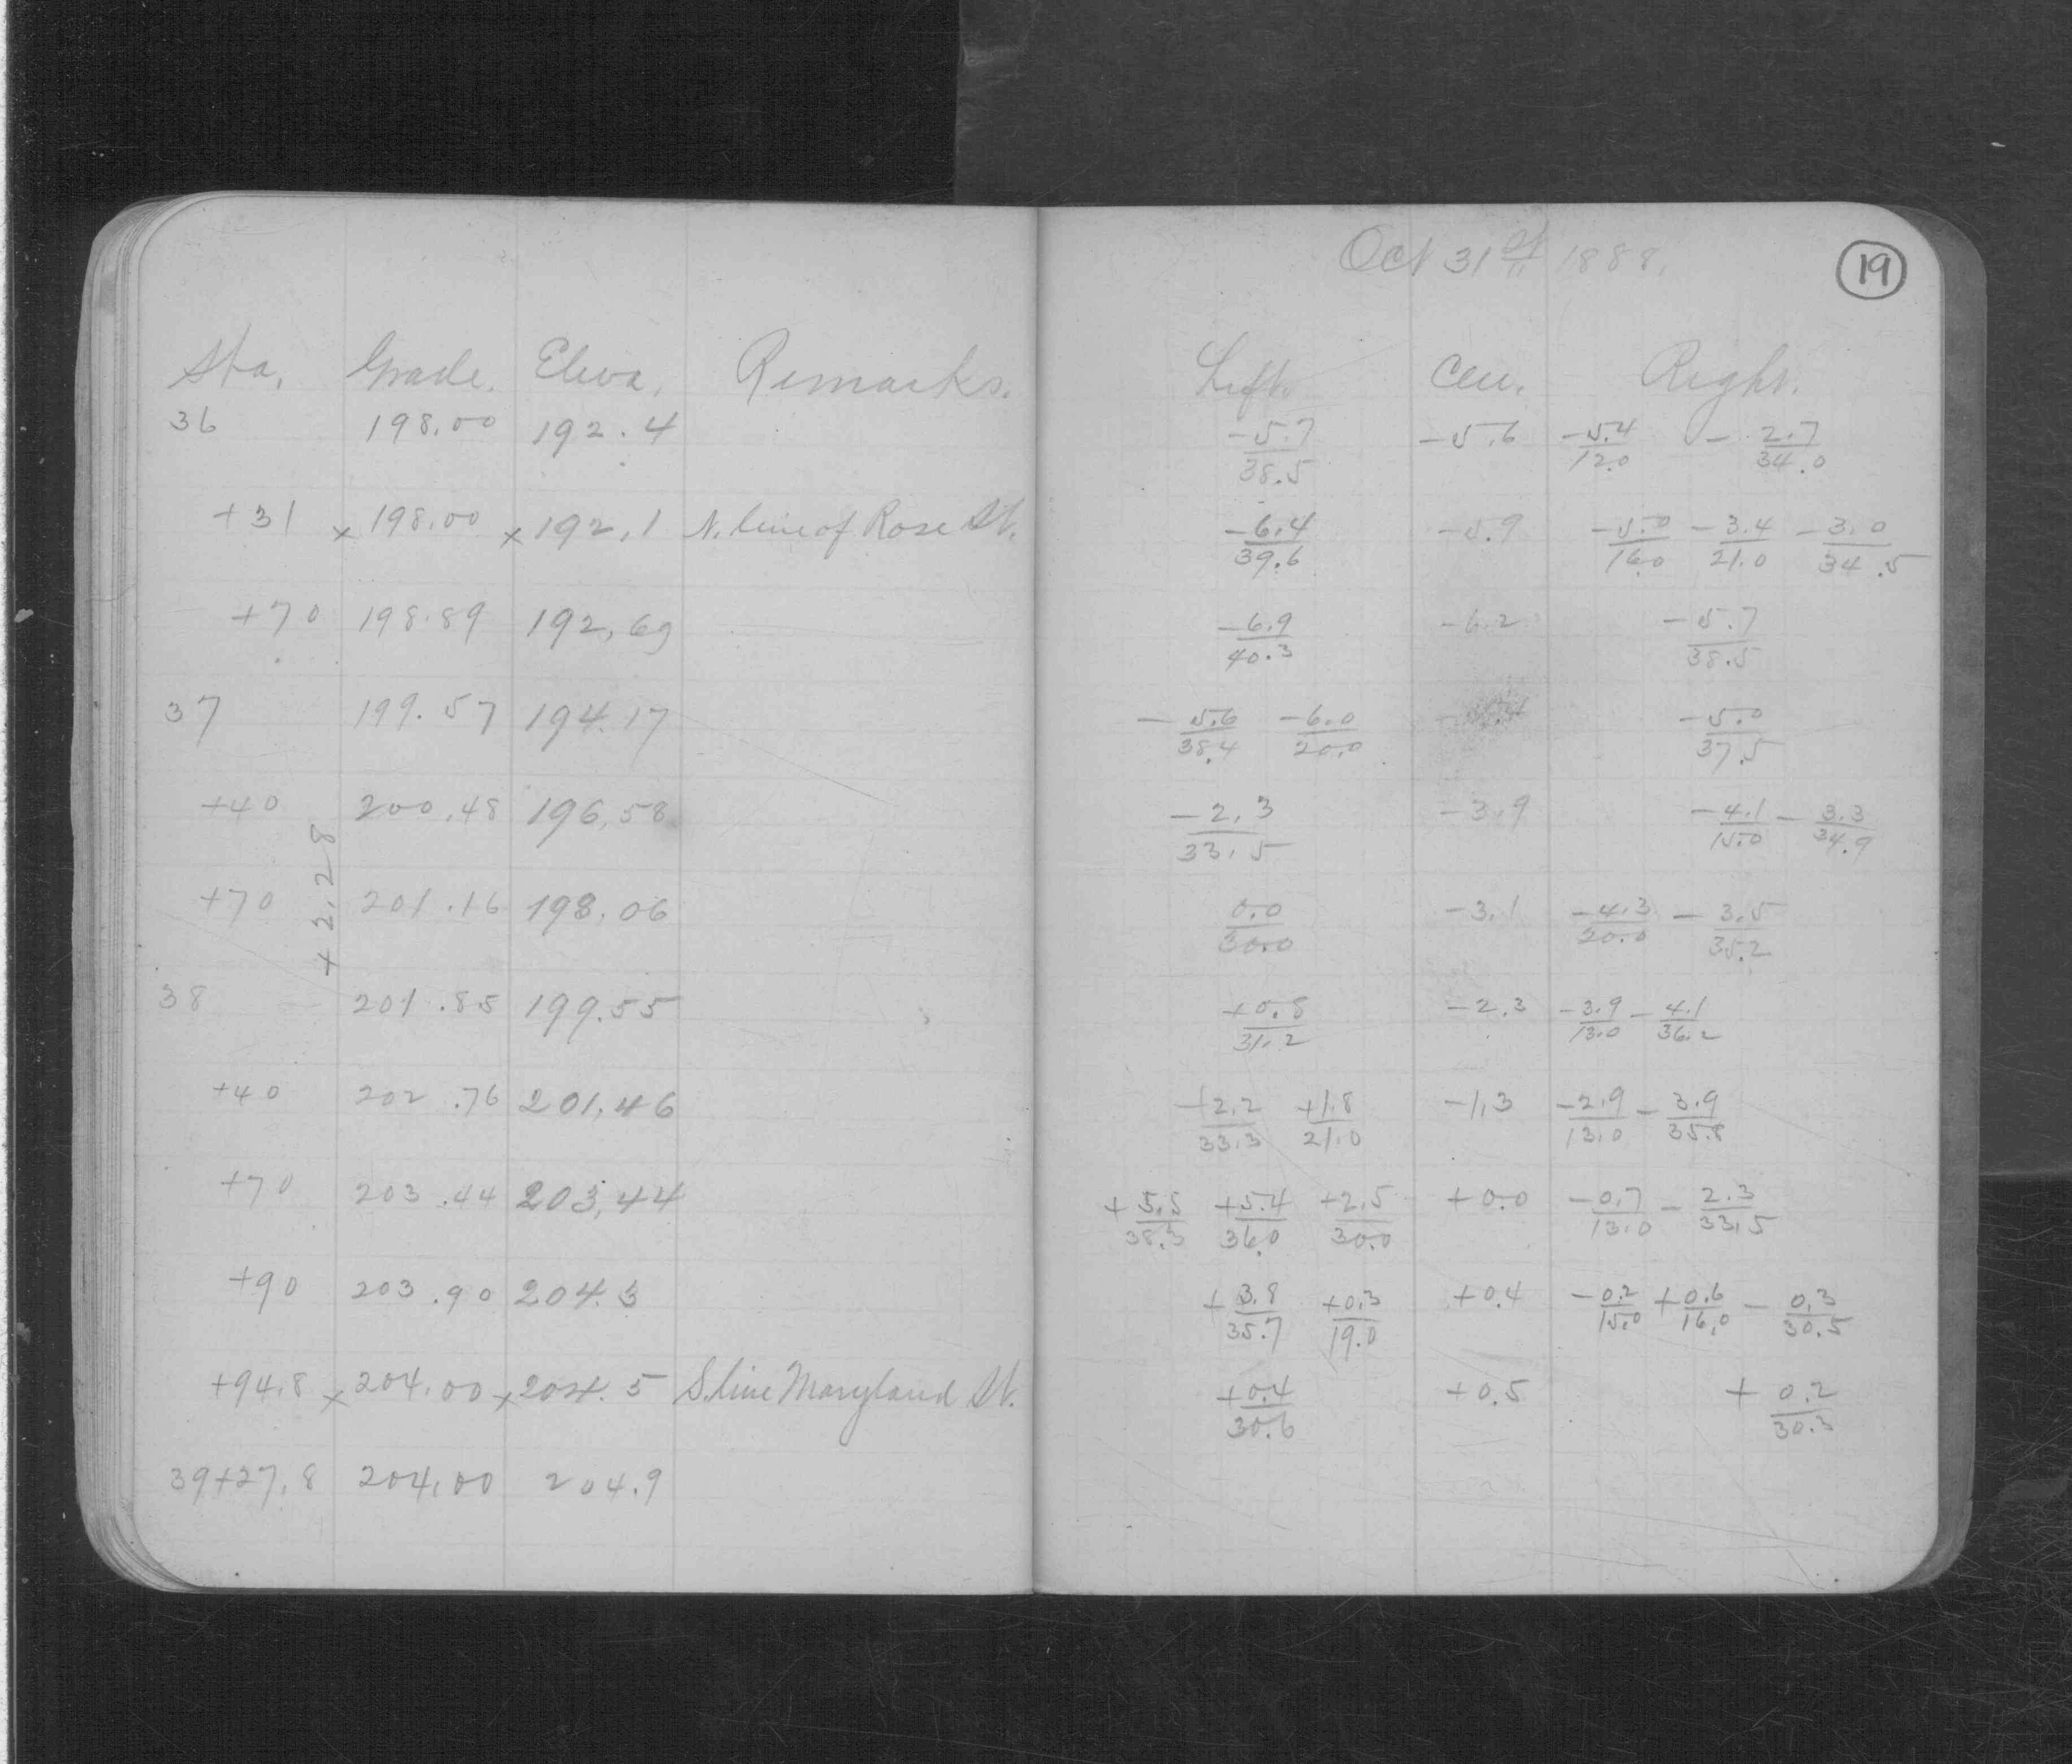 Oct 31st 1888.
19
Sta. Grade. Eleva. Remarks. Left. Cen. Right.
36 198.00 192.4 -5.7/38.5 -5.6 -5.4/12.0 -2.7/34.0
+31 x 198.00 x 192.1 N. line of Rose St. -6.4/39.6 -5.9 -5.0/16.0 -3.4/21.0 -3.0/34.5
+70 198.89 192.69 -6.9/40.3 -6.2 -5.7/38.5
37 199.57 194.17 -5.6/38.4 -6.0/20.0 -5.0/37.5
+40 200.48 196.58 -2.3/33.5 -3.9 -4.1/15.0 -3.3/34.9
+2.28
+70 201.16 198.06 0.0/30.0 -3.1 -4.3/20.0 -3.5/35.2
38 201.85 199.55 +0.8/31.2 -2.3 -3.9/13.0 -4.1/36.2
+40 202.76 201.46 +2.2/33.3 +1.8/21.0 -1.3 -2.9/13.0 -3.9/35.8
+70 203.44 203.44 +5.5/38.3 +5.4/36.0 +2.5/30.0 +0.0 -0.7/13.0 -2.3/33.5
+90 203.90 204.3 +3.8/35.7 +0.3/19.0 +0.4 -0.2/15.0 +0.6/16.0 -0.3/30.5
+94.8 x 204.00 x 204.5 S. line Maryland St. +0.4/30.6 +0.5 +0.2/30.3
39+27.8 204.00 204.9